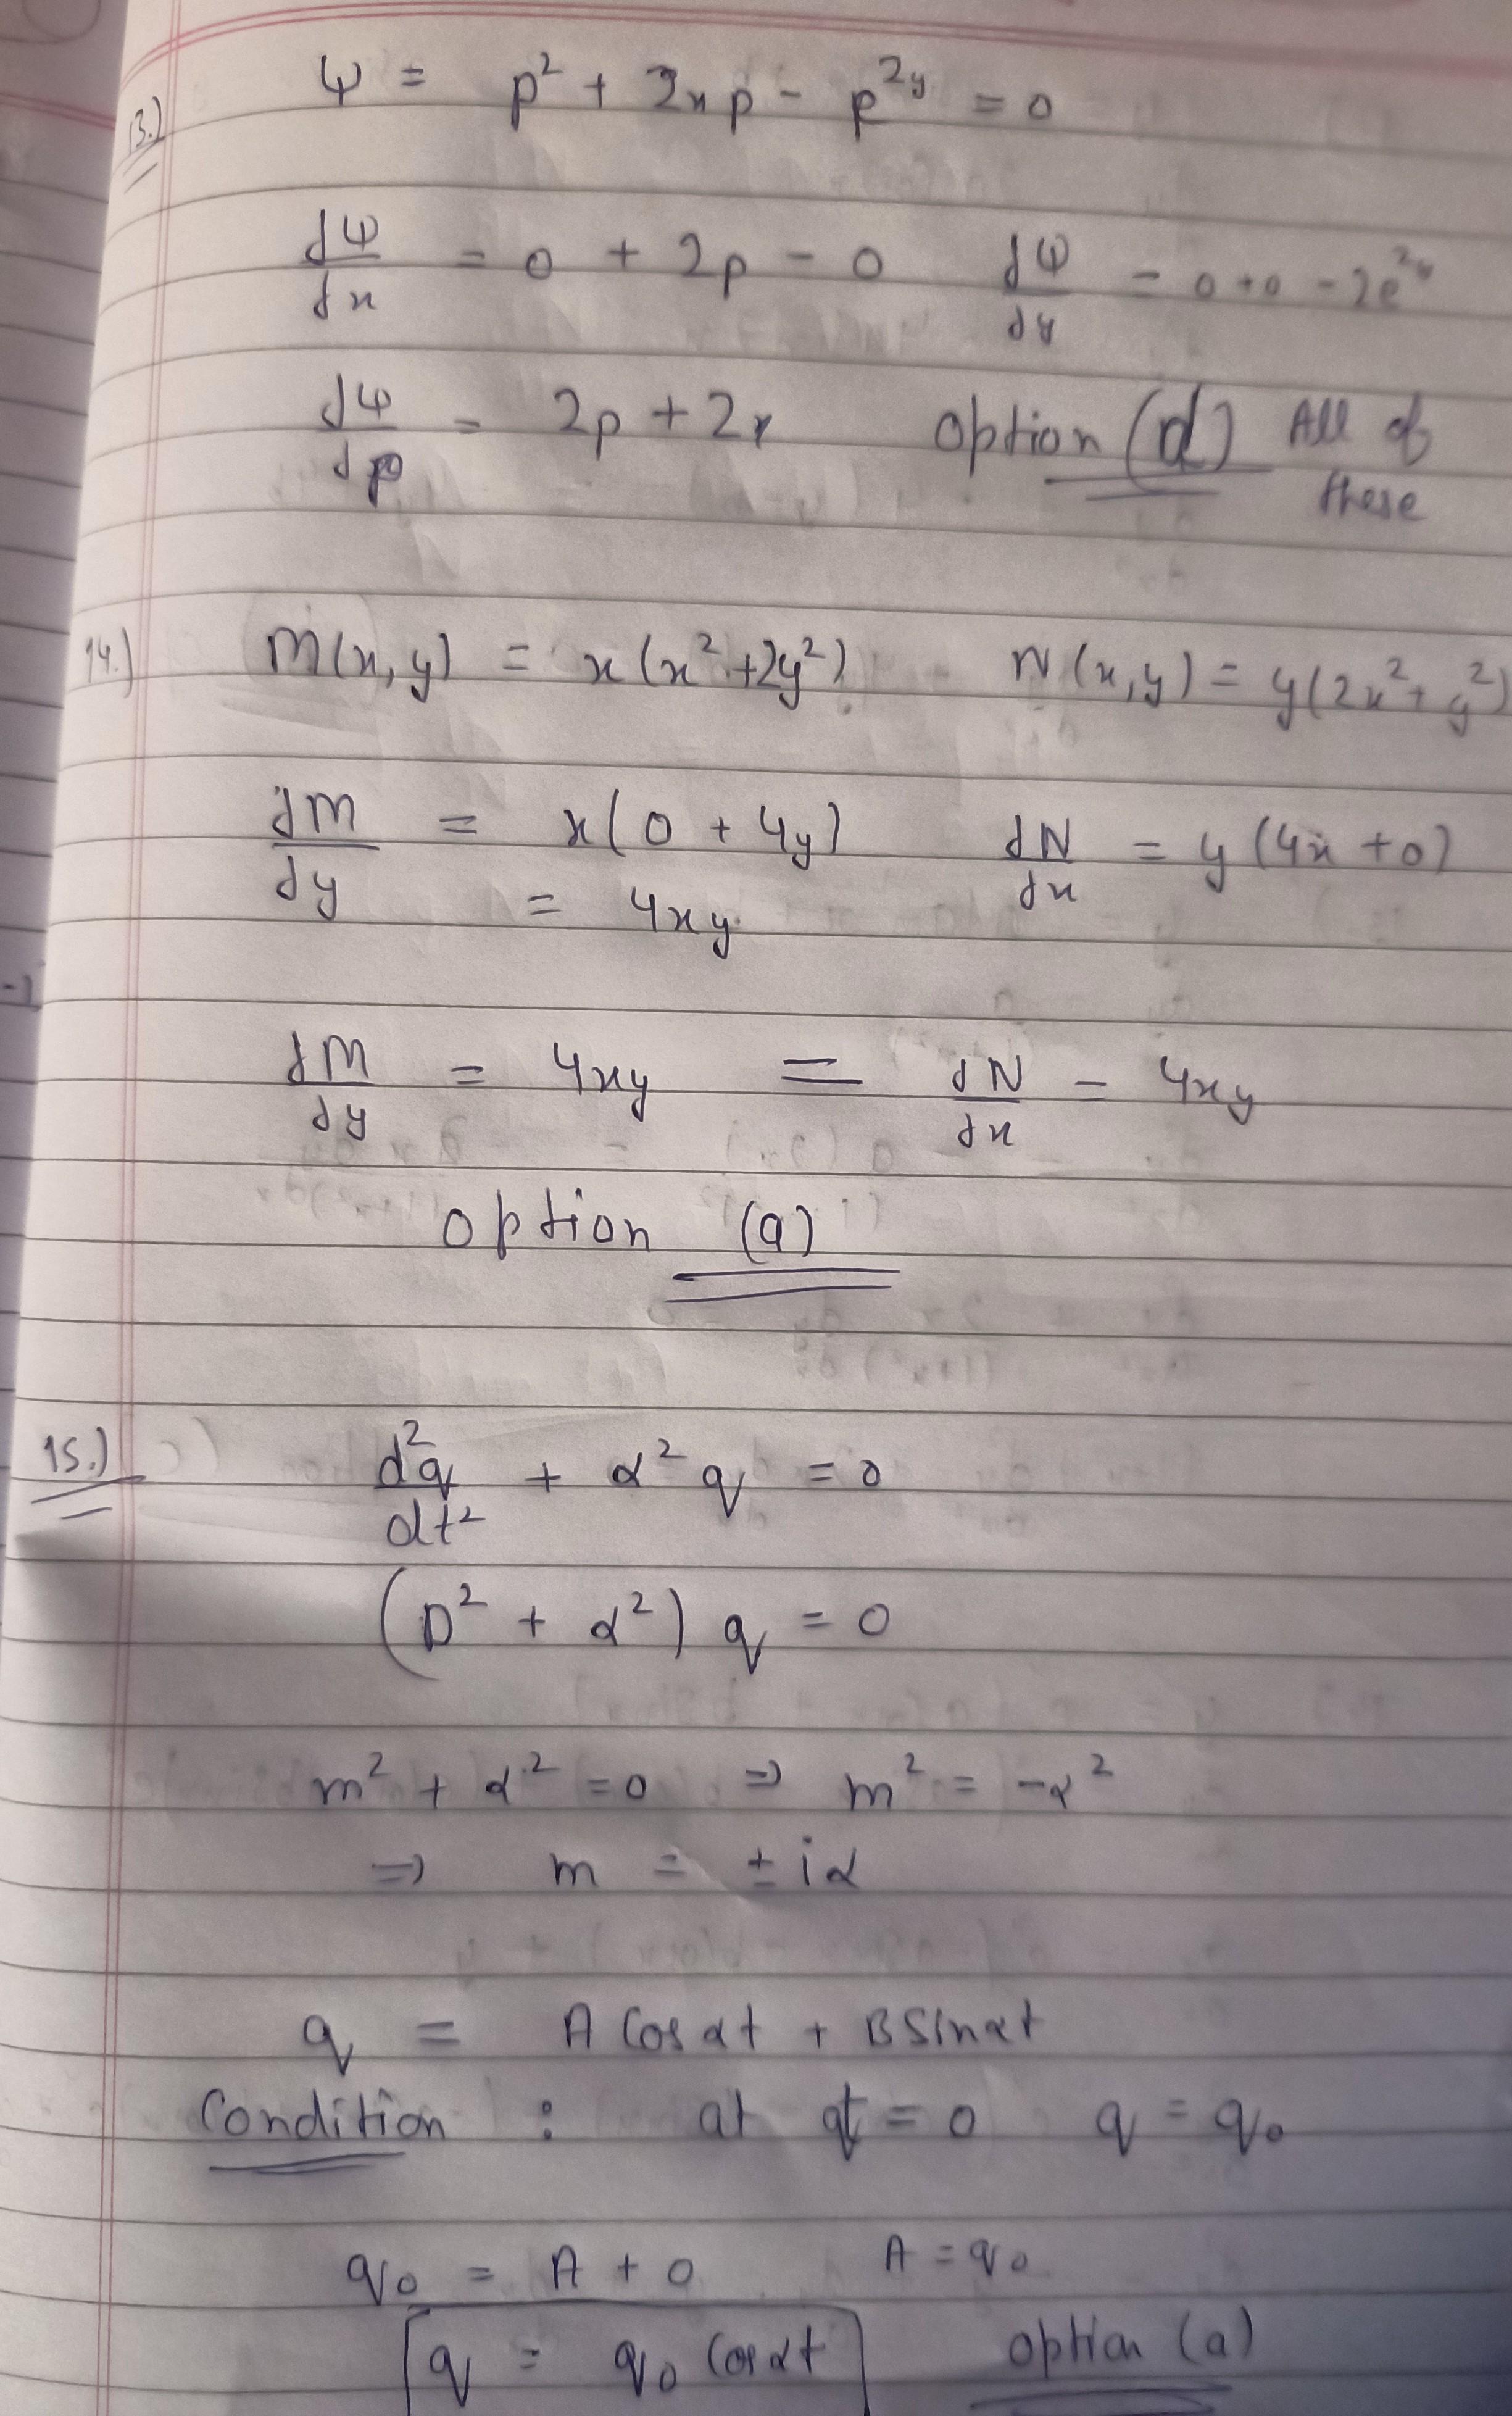 13.) ψ = p² + 2xp - e^{2y} = 0
∂ψ/∂x = 0 + 2p - 0   ∂ψ/∂y = 0 + 0 - 2e^{2y}
∂ψ/∂p = 2p + 2x   option (d) All of
these
14.) M(x,y) = x(x²+2y²)   N(x,y) = y(2x²+y²)
∂M/∂y = x(0 + 4y)   ∂N/∂x = y(4x + 0)
= 4xy
∂M/∂y = 4xy = ∂N/∂x = 4xy
option (a)
15.) d²q/dt² + α²q = 0
(D² + α²) q = 0
m² + α² = 0 ⇒ m² = -α²
⇒ m = ± iα
q = A Cos αt + B Sin αt
Condition : at t = 0 q = q₀
q₀ = A + 0   A = q₀
q = q₀ Cos αt   option (a)